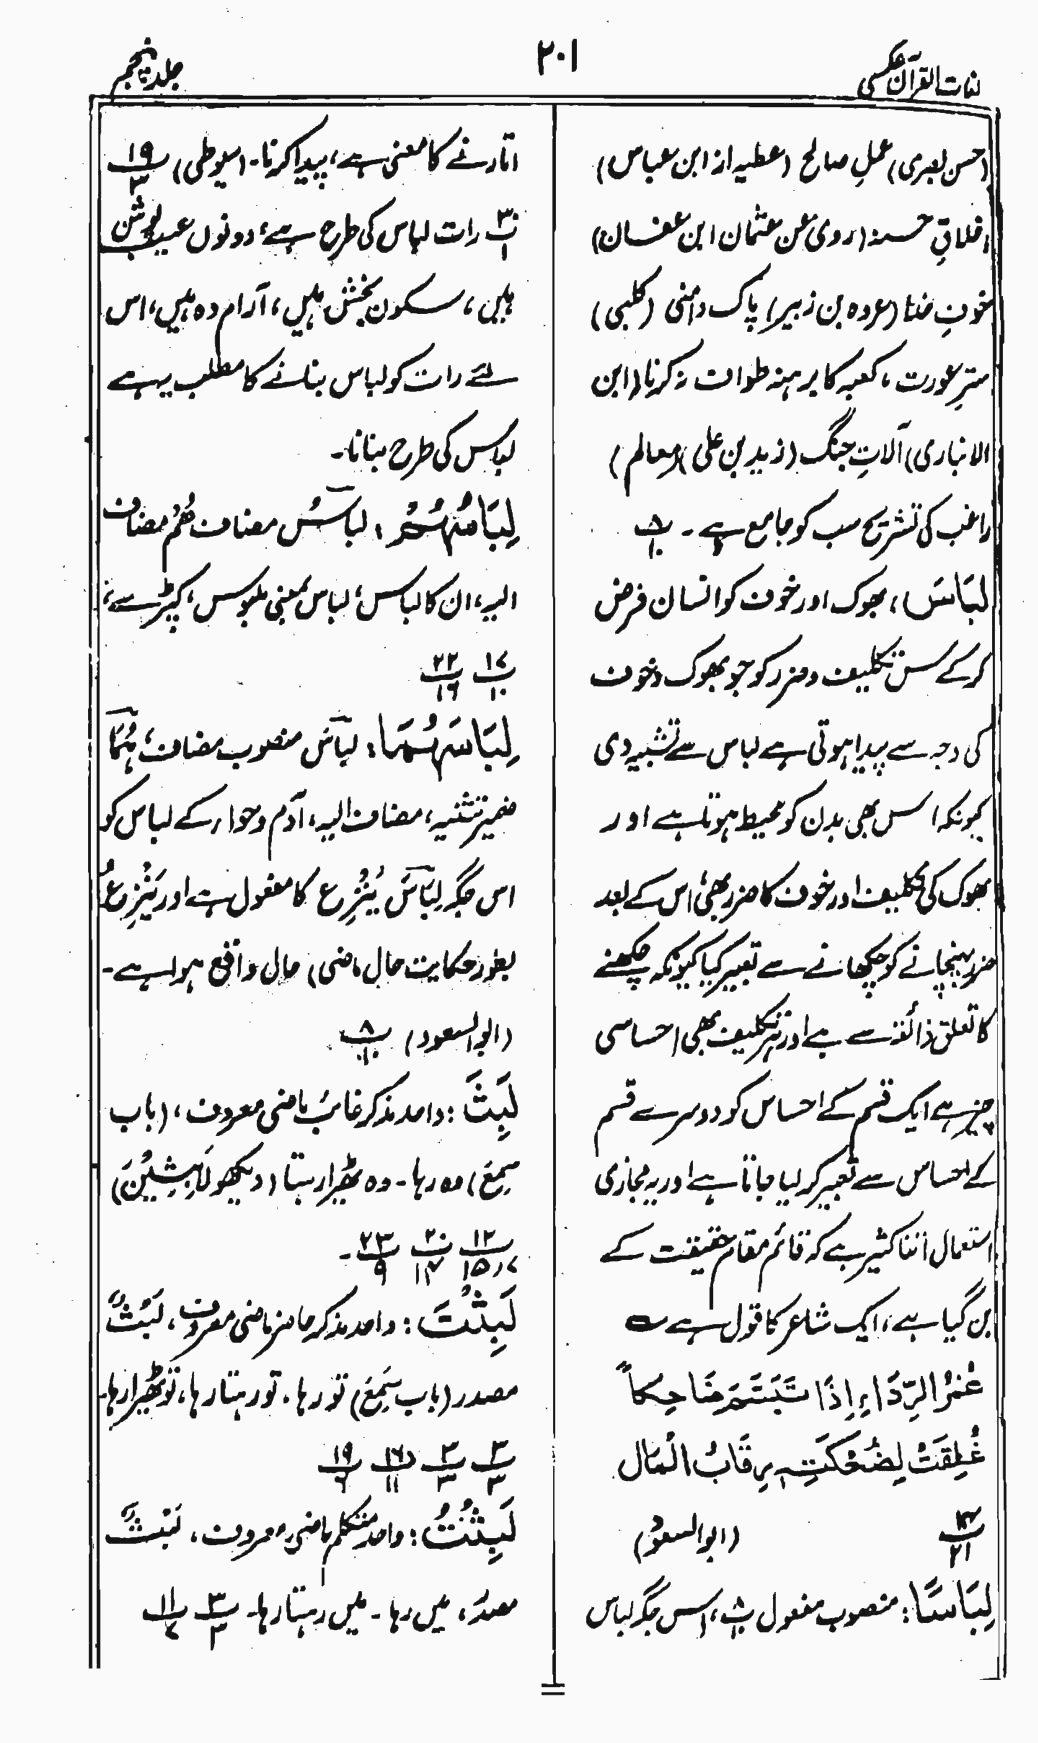 لغات القرآن عکسی
۲۰۱
جلد پنجم
(حسن بصری) عملِ صالح (عطیہ از ابن عباس)
اخلاقِ حسنہ (روی عن عثمان ابن عفان)
خوفِ خدا (عروہ بن زبیر) پاک دامنی (کلبی)
سترِ عورت، کعبہ کا برہنہ طواف نہ کرنا (ابن
الانباری) آلاتِ جنگ (زید بن علی) (معالم)
راغب کی تشریح سب کو جامع ہے۔ پ ۸/۱۰
لِبَاسَ، بھوک اور خوف کو انسان فرض
کرکے اس تکلیف و ضرر کو جو بھوک و خوف
کی وجہ سے پیدا ہوتی ہے لباس سے تشبیہ دی
کیونکہ اس بھی بدن کو محیط ہوتا ہے اور
بھوک کی تکلیف اور خوف کا ضرر بھی، اس کے بعد
ضرر پہنچانے کو چکھانے سے تعبیر کیا کیونکہ چکھنے
کا تعلق ذائقہ سے ہے اور ہر تکلیف بھی احساسی
چیز ہے ایک قسم کے احساس کو دوسرے قسم
کے احساس سے تعبیر کر لیا جاتا ہے اور یہ مجازی
استعمال اتنا کثیر ہے کہ قائم مقام حقیقت کے
بن گیا ہے، ایک شاعر کا قول ہے ؎
غَمْرُ الرِّدَاءِ إِذَا تَبَسَّمَ ضَاحِكاً
غُلِقَتْ لِضَحْكَتِهٖ رِقَابُ الْمَالِ
(ابو السعود) پ ۱۴/۲۱
لِبَاسًا: منصوب مفعول پ ۸/۱۰، اس جگہ لباس
اتارنے کا معنی ہے، پیدا کرنا۔ (سیوطی) پ ۱۹/۳
پ ۳۰/۱ رات لباس کی طرح ہے، دونوں عیب پوش
ہیں، سکون بخش ہیں، آرام دہ ہیں، اس
لئے رات کو لباس بنانے کا مطلب یہ ہے
لباس کی طرح بنانا۔
لِبَاسُهُمْ: لباسُ مضاف هُمْ مضاف
الیہ، ان کا لباس، لباس بمعنی ملبوس، کپڑے،
پ ۱۷/۱۰ پ ۲۲/۱۶
لِبَاسَهُمَا: لباسَ منصوب مضاف، هُمَا
ضمیر تثنیہ، مضاف الیہ، آدم و حوا، کے لباس کو
اس جگہ لِبَاسَ یَنْزِعُ کا مفعول ہے اور یَنْزِعُ
بطور حکایت حال ماضی) حال واقع ہوا ہے۔
(ابو السعود) پ ۸/۱۰
لَبِثَ: واحد مذکر غائب ماضی معروف، (باب
سَمِعَ) وہ رہا۔ وہ ٹھہرا رہتا (دیکھو لَابِثِیْنَ)
پ ۱۲/۱۵،۷ پ ۲۰/۱۴ پ ۲۳/۹۔
لَبِثْتَ: واحد مذکر حاضر ماضی معروف، لَبْثٌ
مصدر (باب سَمِعَ) تو رہا۔ تو رہتا رہا، تو ٹھہرا رہا۔
پ ۳/۳ پ ۳/۳ پ ۱۶/۱۱ پ ۱۹/۶
لَبِثْتُ: واحد متکلم ماضی معروف، لَبْثٌ
مصدر، میں رہا۔ میں رہتا رہا۔ پ ۳/۳ پ ۱۱/۷